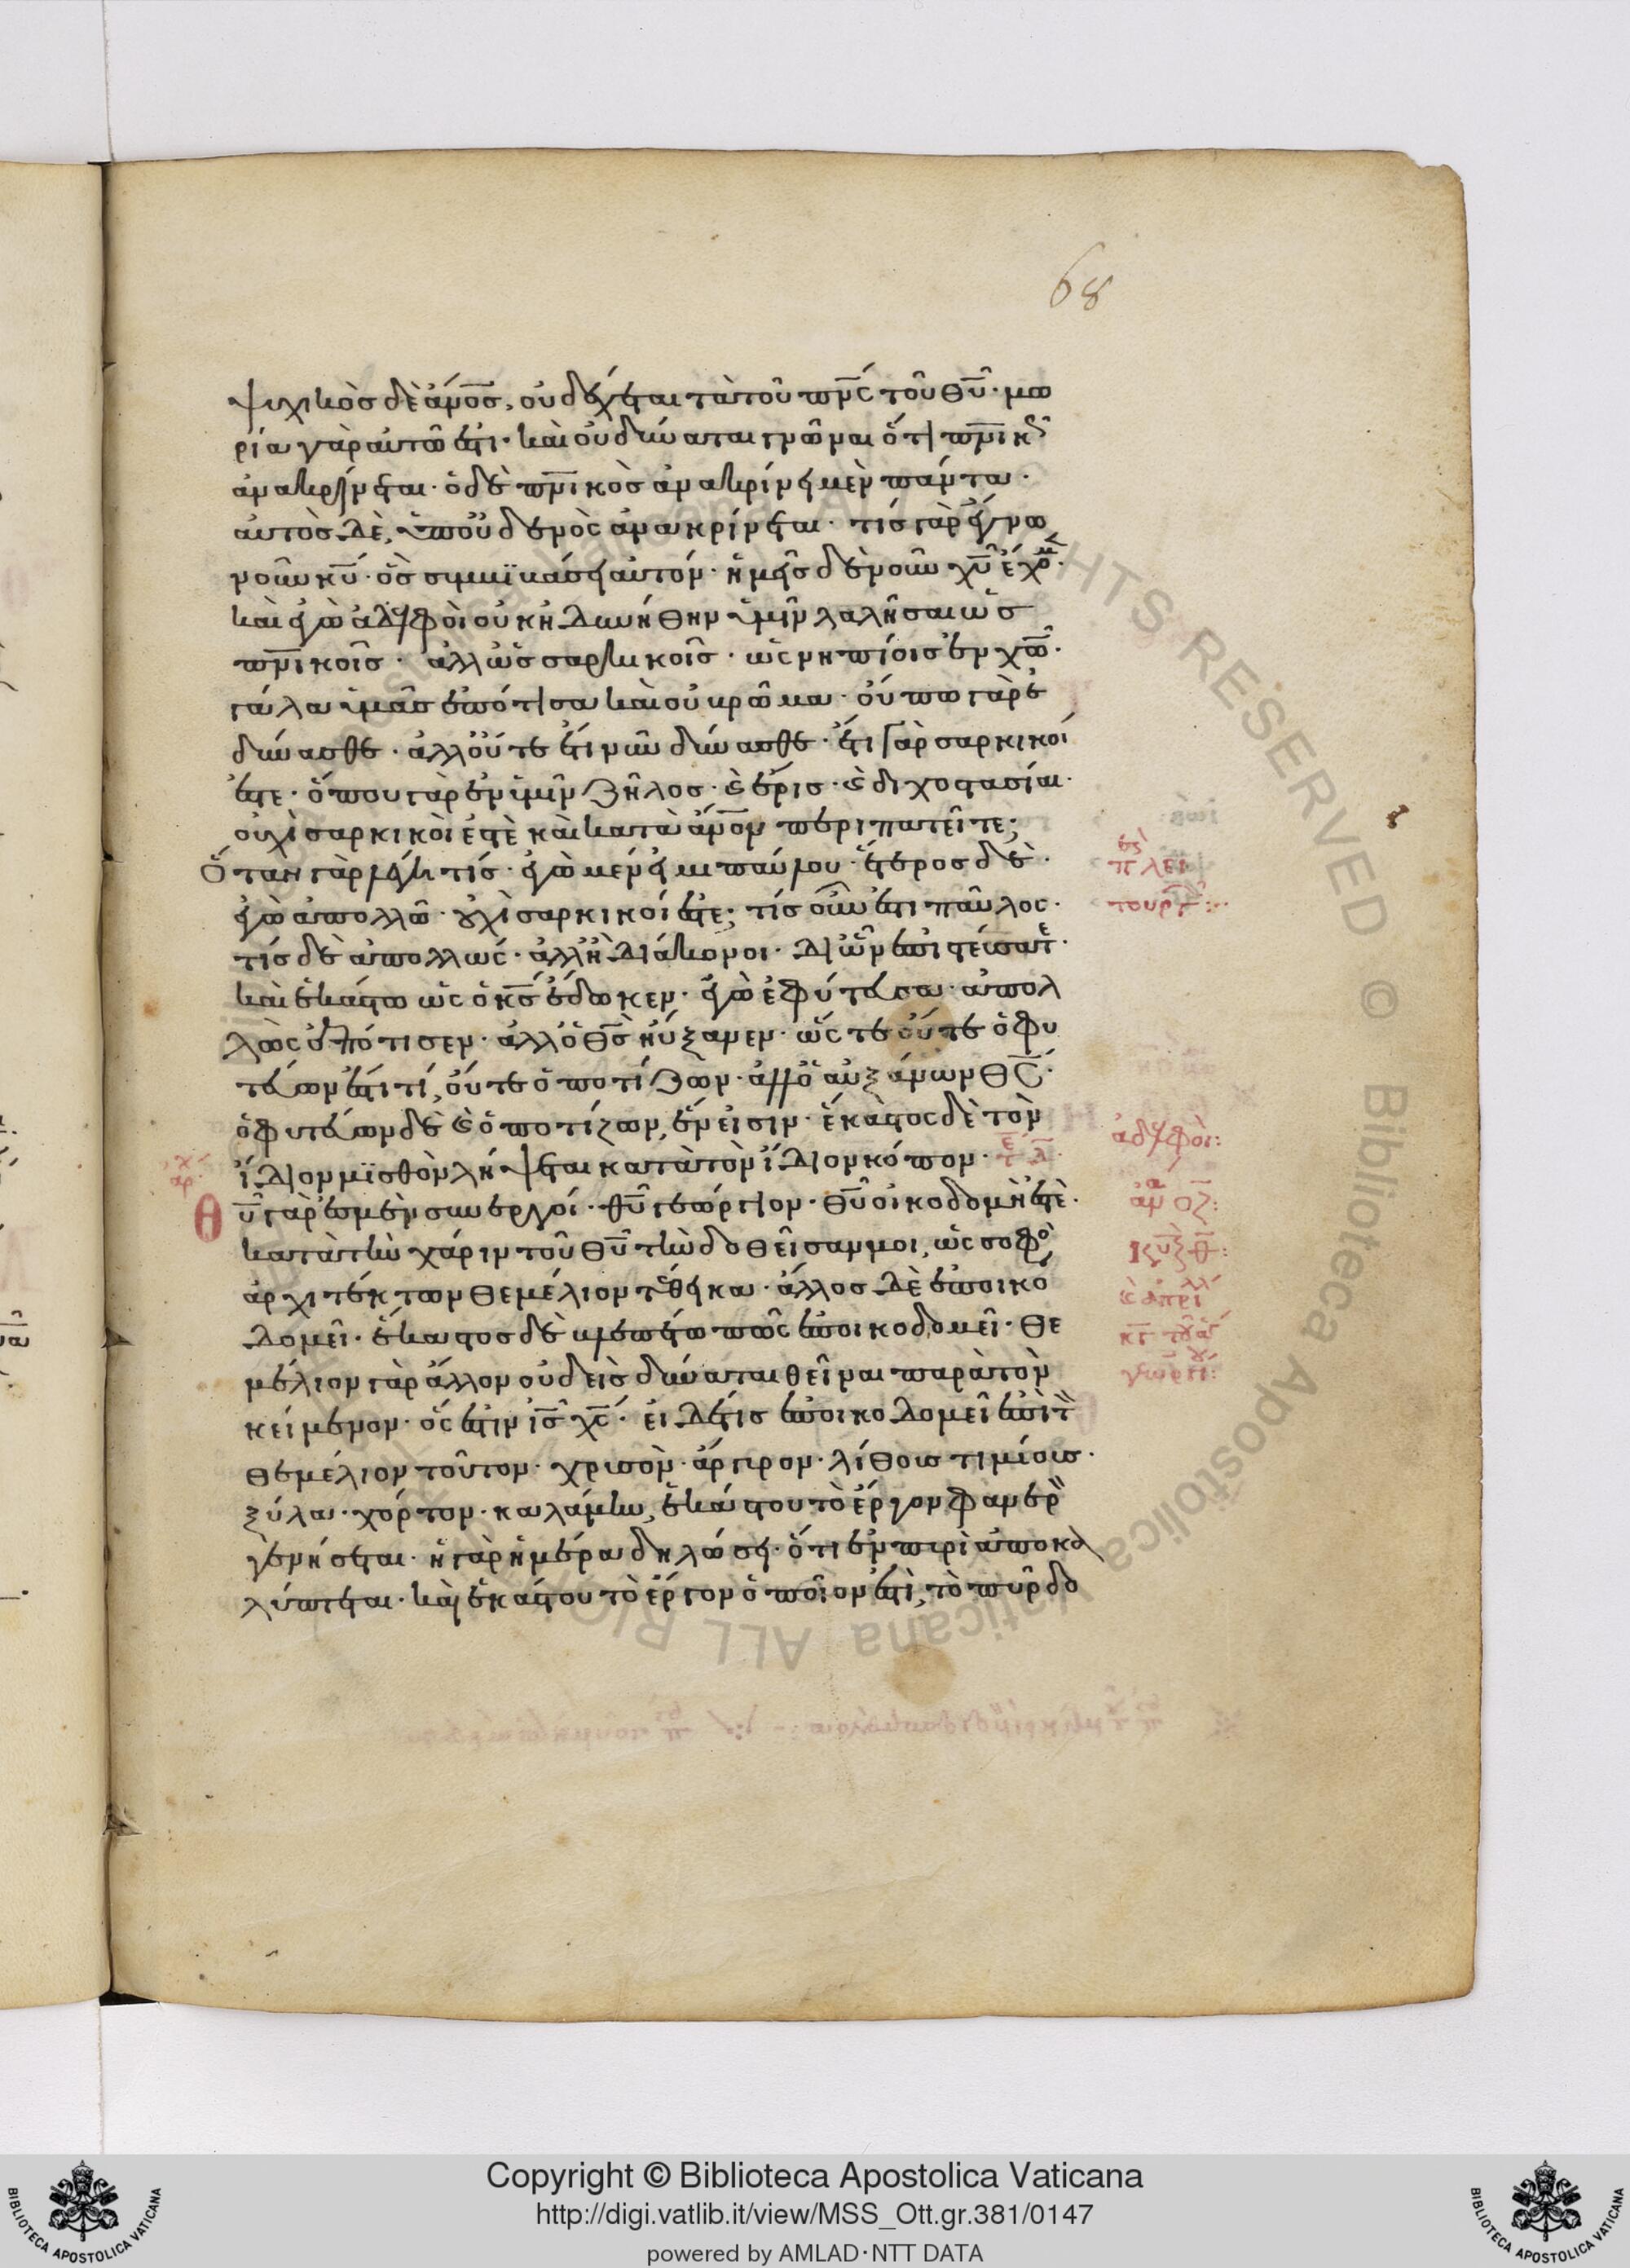 68
ψυχικὸσ δὲ ἄν̅ο̅σ, οὐ δέχεται τὰ τοῦ πν̅ς τοῦ θυ̅· μω
ρία γὰρ αὐτῶ ἐστι· καὶ οὐ δύναται γνῶναι ὅτι πν̅ικῶ
ἀνακρίνεται· ὁ δὲ πν̅ικὸσ ἀνακρίνει μὲν πάντα·
ἀυτὸσ δὲ, ὑπ οὐδενὸς ἀνακρίνεται· τίσ γὰρ ἔγνω
νοῦν κυ̅· ὃσ συμβϊβάσει αὐτόν· ἡμεῖσ δὲ νοῦν χυ̅ ἔχομ·
καὶ ἐγὼ ἀδελφοὶ οὐκ ἠδυνήθην ὑμῖν λαλῆσαι ὡσ
πν̅ικοῖσ· ἀλλ ὡσ σαρκικοῖσ· ὡς νηπίοισ ἐν χω̅·
γάλα ὑμᾶσ ἐπότισα καὶ οὐ βρῶμα· οὔπω γὰρ ἐ
δύνασθε· ἀλλ οὔτε ἔτι νῦν δύνασθε· ἔτι γὰρ σαρκικοί
ἐστε· ὅπου γὰρ ἐν ὑμῖν ζῆλοσ· ϗ ἔρισ· ϗ διχοστασίαι·
οὐχὶ σαρκικοὶ ἐστὲ καὶ κατὰ ἄν̅ο̅ν περιπατεῖτε;
Ὅταν γὰρ λέγει τίσ· ἐγὼ μέν εἰμι παύλου· ἕτεροσ δὲ·
ἐγὼ ἀπολλῶ· οὐχὶ σαρκικοί ἐστε; τίσ οὖν ἐστι παῦλος·
τίσ δὲ ἀπολλώς· ἀλλ ἢ διάκονοι· δι ὧν ἐπιστεύσατε·
καὶ ἑκάστω ὡς ὁ κ̅σ ἔδωκεν· ἐγὼ ἐφύτευσα· ἀπολ
λὼς ἐπότισεν· ἀλλ ὁ θ̅σ ηὔξανεν· ὥς τε οὔτε ὁ φυ
τεύων ἐστί τί, οὔτε ὁ ποτίζων· ἀλλ ὁ αὐξάνων θ̅ς·
ὁ φυτεύων δὲ ϗ ὁ ποτίζων, ἕν εἰσιν· ἕκαστος δὲ τὸν
ἴδιον μϊσθὸν λήψεται κατὰ τὸν ἴδιον κόπον·
Θυ̅ γάρ ἐσμεν συνεργοί· θυ̅ γεώργιον· θυ̅ οἰκοδομὴ ἐστὲ·
κατὰ τὴν χάριν τοῦ θυ̅ τὴν δοθεῖσαν μοι, ὡς σοφὸ
ἀρχιτέκτων θεμέλιον τέθεικα· ἄλλοσ δὲ ἐποικο
δομεῖ· ἕκαστοσ δὲ βλεπέτω πῶς ἐποικοδομεῖ· θε
μέλιον γὰρ ἄλλον οὐδεὶσ δύναται θεῖναι παρὰ τὸν
κείμενον· ὅς ἐστιν ι̅σ χ̅ς· εἰ δέ τισ ἐποικοδομεῖ ἐπὶ τὸν
θεμέλιον τοῦτον· χρυσὸν· ἄργυρον· λίθουσ τιμίουσ·
ξύλα· χόρτον· καλάμην, ἑκάστου τὸ ἔργον φανερὸν
γενήσεται· ἡ γὰρ ἡμέρα δηλώσει· ὅτι ἐν πυρὶ ἀποκα
λύπτεται· καὶ ἑκάστου τὸ ἔργον ὁποῖον ἐστὶ, τὸ πῦρ δο
ἀδελφὸι:
Copyright © Biblioteca Apostolica Vaticana
http://digi.vatlib.it/view/MSS_Ott.gr.381/0147
powered by AMLAD·NTT DATA
BIBLIOTECA APOSTOLICA VATICANA
BIBLIOTECA APOSTOLICA VATICANA